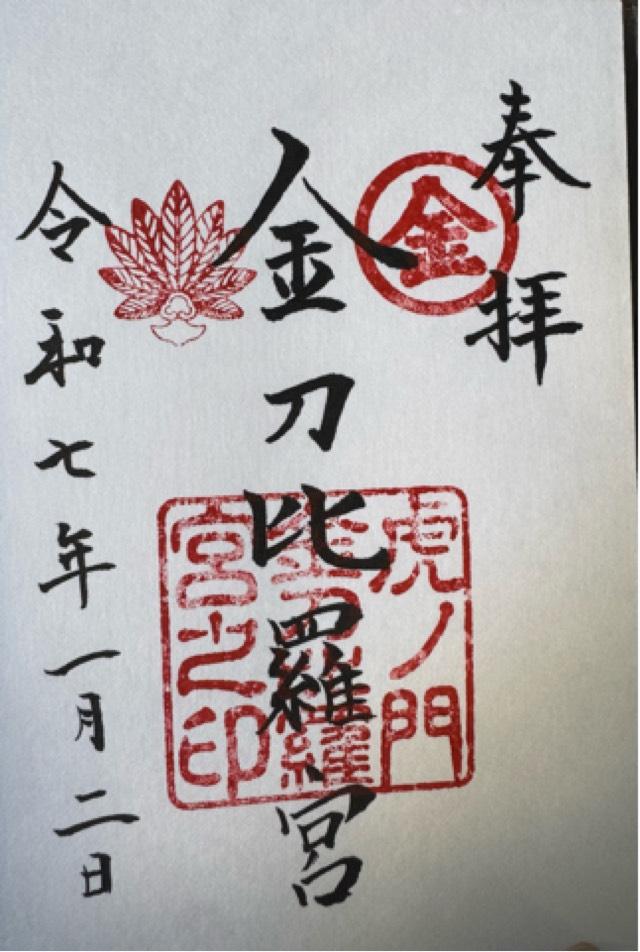 奉拝
金
金刀比羅宮
虎ノ門
金刀比羅
宮之印
令和七年一月二日